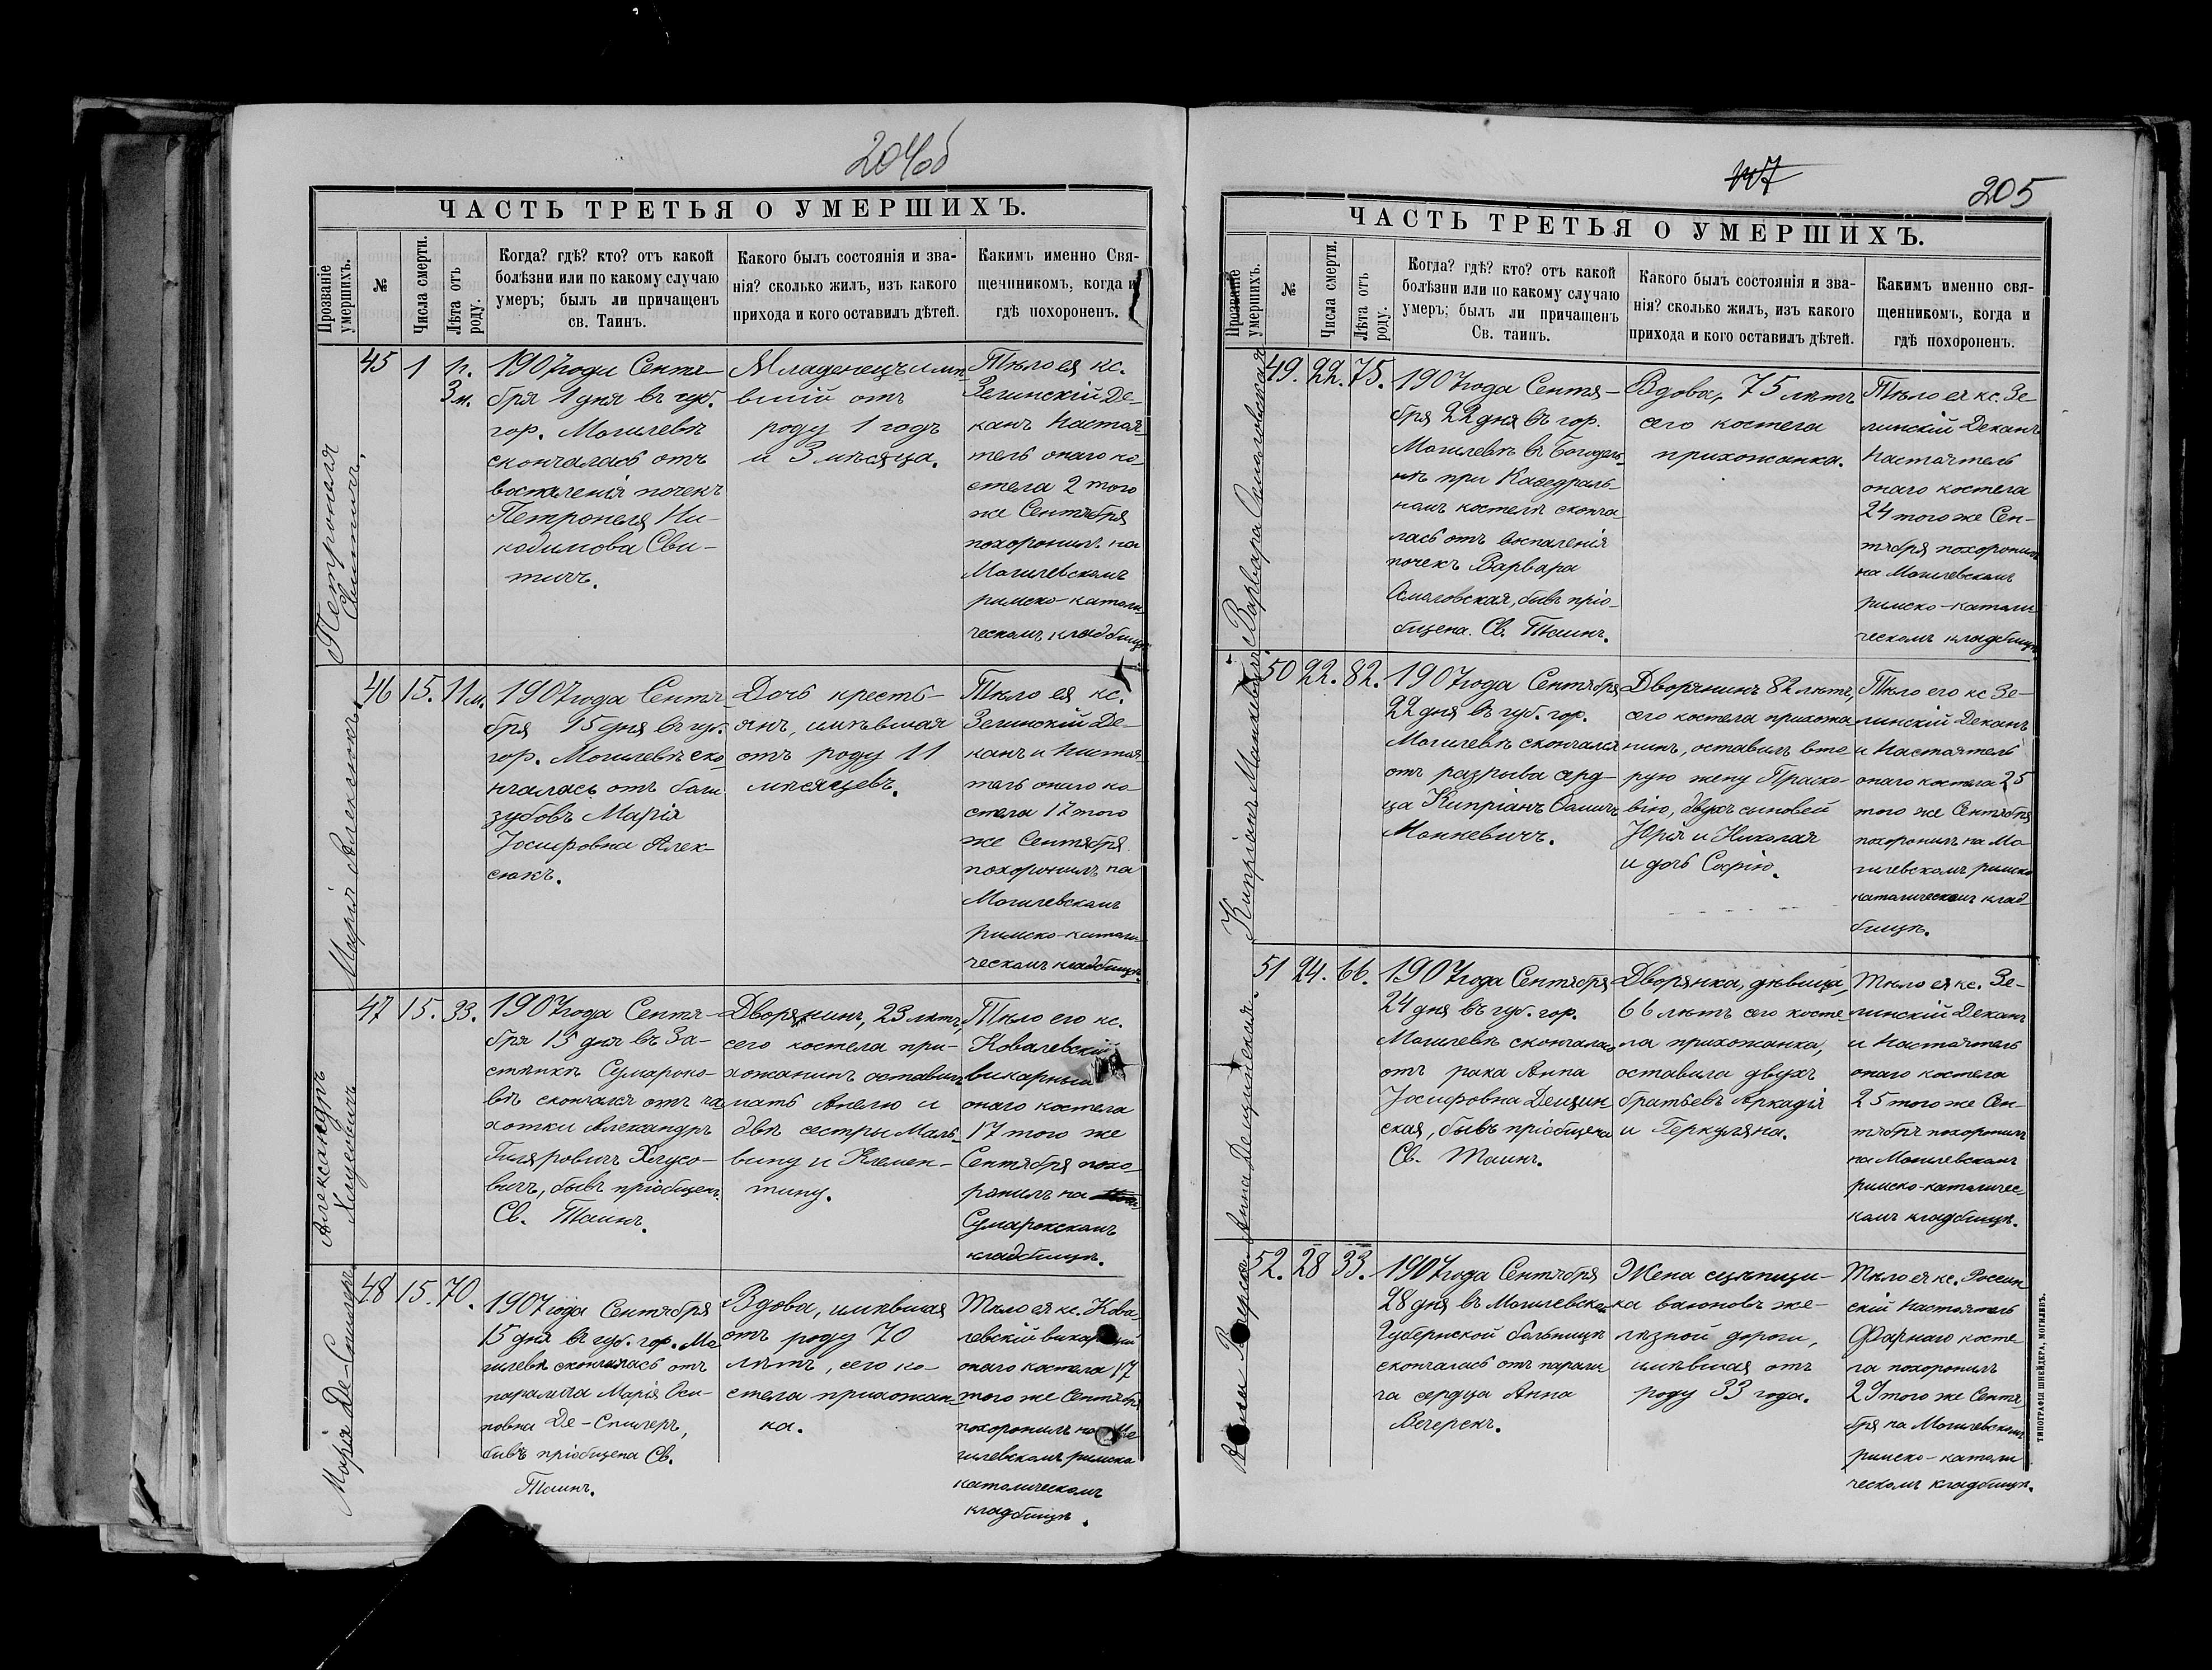 204об
ЧАСТЬ ТРЕТЬЯ О УМЕРШИХЪ.
Прозваніе умершихъ.
№
Числа смерти.
Лѣта отъ роду.
Когда? гдѣ? кто? отъ какой
болѣзни или по какому случаю
умеръ; былъ ли причащенъ
св. Таинъ.
Какого былъ состоянія и зва-
нія? сколько жилъ, изъ какого
прихода и кого оставилъ дѣтей.
Какимъ именно Свя-
щенникомъ, когда и
гдѣ похороненъ.
Петронеля
Свитичъ.
45
1
1г.
3м.
1907 года Сентя-
бря 1 дня въ губ.
гор. Могилевѣ
скончалась отъ
воспаленія почекъ
Петронеля Ни-
кодимова Сви-
тичъ.
Младенецъ имѣ-
вшій отъ
роду 1 годъ
и 3 мѣсяца.
Тѣло ея кс.
Зелинскій Де-
канъ Настоя-
тель онаго ко-
стела 2 того
же Сентября
похоронилъ на
Могилевскомъ
римско-католи-
ческомъ кладбищѣ.
Марія Алексюкъ.
46
15.
11м.
1907 года Сентя-
бря 15 дня въ губ.
гор. Могилевѣ ско-
нчалась отъ боли
зубовъ Марія
Іосифовна Алек-
сюкъ.
Дочь кресть-
янъ, имѣвшая
отъ роду 11
мѣсяцевъ.
Тѣло ея кс.
Зелинскій Де-
канъ и Настоя-
тель онаго ко-
стела 17 того
же Сентября
похоронилъ на
Могилевскомъ
римско-католи-
ческомъ кладбищѣ.
Александръ
Хлусовичъ
47
15.
33.
1907 года Сентя-
бря 15 дня въ За-
стѣнкѣ Сумароко-
вѣ скончался отъ ча
хотки Александръ
Гиляровичъ Хлусо-
вичъ, бывъ пріобщенъ
Св. Таинъ.
Дворянинъ, 23 лѣтъ,
сего костела при-
хожанинъ оставилъ
мать Анелю и
двѣ сестры Маль-
вину и Клемен-
тину.
Тѣло его кс.
Ковалевскій
викарный
онаго костела
17 того же
Сентября похо-
ронилъ на
Сумарокскомъ
кладбищѣ.
Марія Де-Спиллеръ
48
15.
70.
1907 года Сентября
15 дня въ губ. гор. Мо
гилевѣ скончалась отъ
паралича Марія Оси-
повна Де-Спиллеръ,
бывъ пріобщена Св.
Таинъ.
Вдова, имѣвшая
отъ роду 70
лѣтъ, сего ко-
стела прихожан-
ка.
Тѣло ея кс. Кова-
левскій викарный
онаго костела 17
того же Сентября
похоронилъ на Мо
гилевскомъ римско
католическомъ
кладбищѣ.
147
205
ЧАСТЬ ТРЕТЬЯ О УМЕРШИХЪ.
Прозваніе умершихъ.
№
Числа смерти.
Лѣта отъ роду.
Когда? гдѣ? кто? отъ какой
болѣзни или по какому случаю
умеръ; былъ ли причащенъ
Св. таинъ.
Какого былъ состоянія и зва-
нія? сколько жилъ, изъ какого
прихода и кого оставилъ дѣтей.
Какимъ именно свя-
щенникомъ, когда и
гдѣ похороненъ.
Варвара Осмоловская
49.
22.
75.
1907 года Сентя-
бря 22 дня въ гор.
Могилевѣ въ Богодель-
нѣ при Каѳедраль-
номъ костелѣ сконча-
лась отъ воспаленія
почекъ Варвара
Осмоловская, бывъ пріо-
бщена Св. Таинъ.
Вдова, 75 лѣтъ
сего костела
прихожанка.
Тѣло ея кс. Зе-
линскій Деканъ
Настоятель
онаго костела
24 того же Сен-
тября похоронилъ
на Могилевскомъ
римско-католи-
ческомъ кладбищѣ.
Кипріанъ Монкевичъ
50
22.
82.
1907 года Сентября
22 дня въ губ. гор.
Могилевѣ скончался
отъ разрыва серд-
ца Кипріанъ Ѳомичъ
Монкевичъ.
Дворянинъ 82 лѣтъ,
сего костела прихожа
нинъ, оставилъ вто
рую жену Праско-
вію, двухъ сыновей
Юрія и Николая
и дочь Софію.
Тѣло его кс Зе-
линскій Деканъ
и Настоятель
онаго костела 25
того же Сентября
похоронилъ на Мо-
гилевскомъ римско
католическомъ клад-
бищѣ.
Анна Дещинская.
51
24.
66.
1907 года Сентября
24 дня въ губ. гор.
Могилевѣ скончалась
отъ рака Анна
Іосифовна Дещин
ская, бывъ пріобщена
Св. Таинъ.
Дворянка, дѣвица,
66 лѣтъ сего косте-
ла прихожанка,
оставила двухъ
братьевъ Аркадія
и Геркуляна.
Тѣло ея кс. Зе-
линскій Деканъ
и Настоятель
онаго костела
25 того же Сен-
тября похоронилъ
на Могилевскомъ
римско-католичес-
комъ кладбищѣ.
52.
28
33.
1907 года Сентября
28 дня въ Могилевской
Губернской больницѣ
скончалась отъ парали
ча сердца Анна
Вечерекъ.
Жена сцѣпщи-
ка вагоновъ же-
лѣзной дороги,
имѣвшая отъ
роду 33 года.
Тѣло ея кс. Россин
скій Настоятель
Фарнаго косте-
ла похоронилъ
29 того же Сентя-
бря на Могилевскомъ
римско-католи
ческомъ кладбищѣ.
ТИПОГРАФІЯ ШНЕЙДЕРА, МОГИЛЕВЪ.